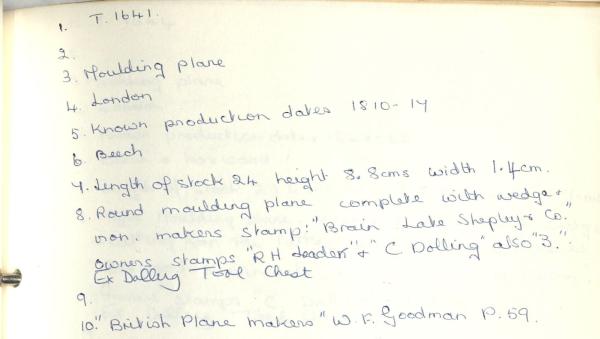 1. T. 1641.
2.
3. Moulding plane
4. London
5. Known production dates 1810-14
6. Beech
7. Length of stock 24 height 8.8cms width 1.4cm.
8. Round moulding plane complete with wedge &
iron. makers stamp: "Brain Lake Shepley & Co."
owners stamps "R H Leader" & "C Dolling" also "3.":
Ex Dolling Tool Chest
9.
10. "British Plane makers" W. F. Goodman P. 59.